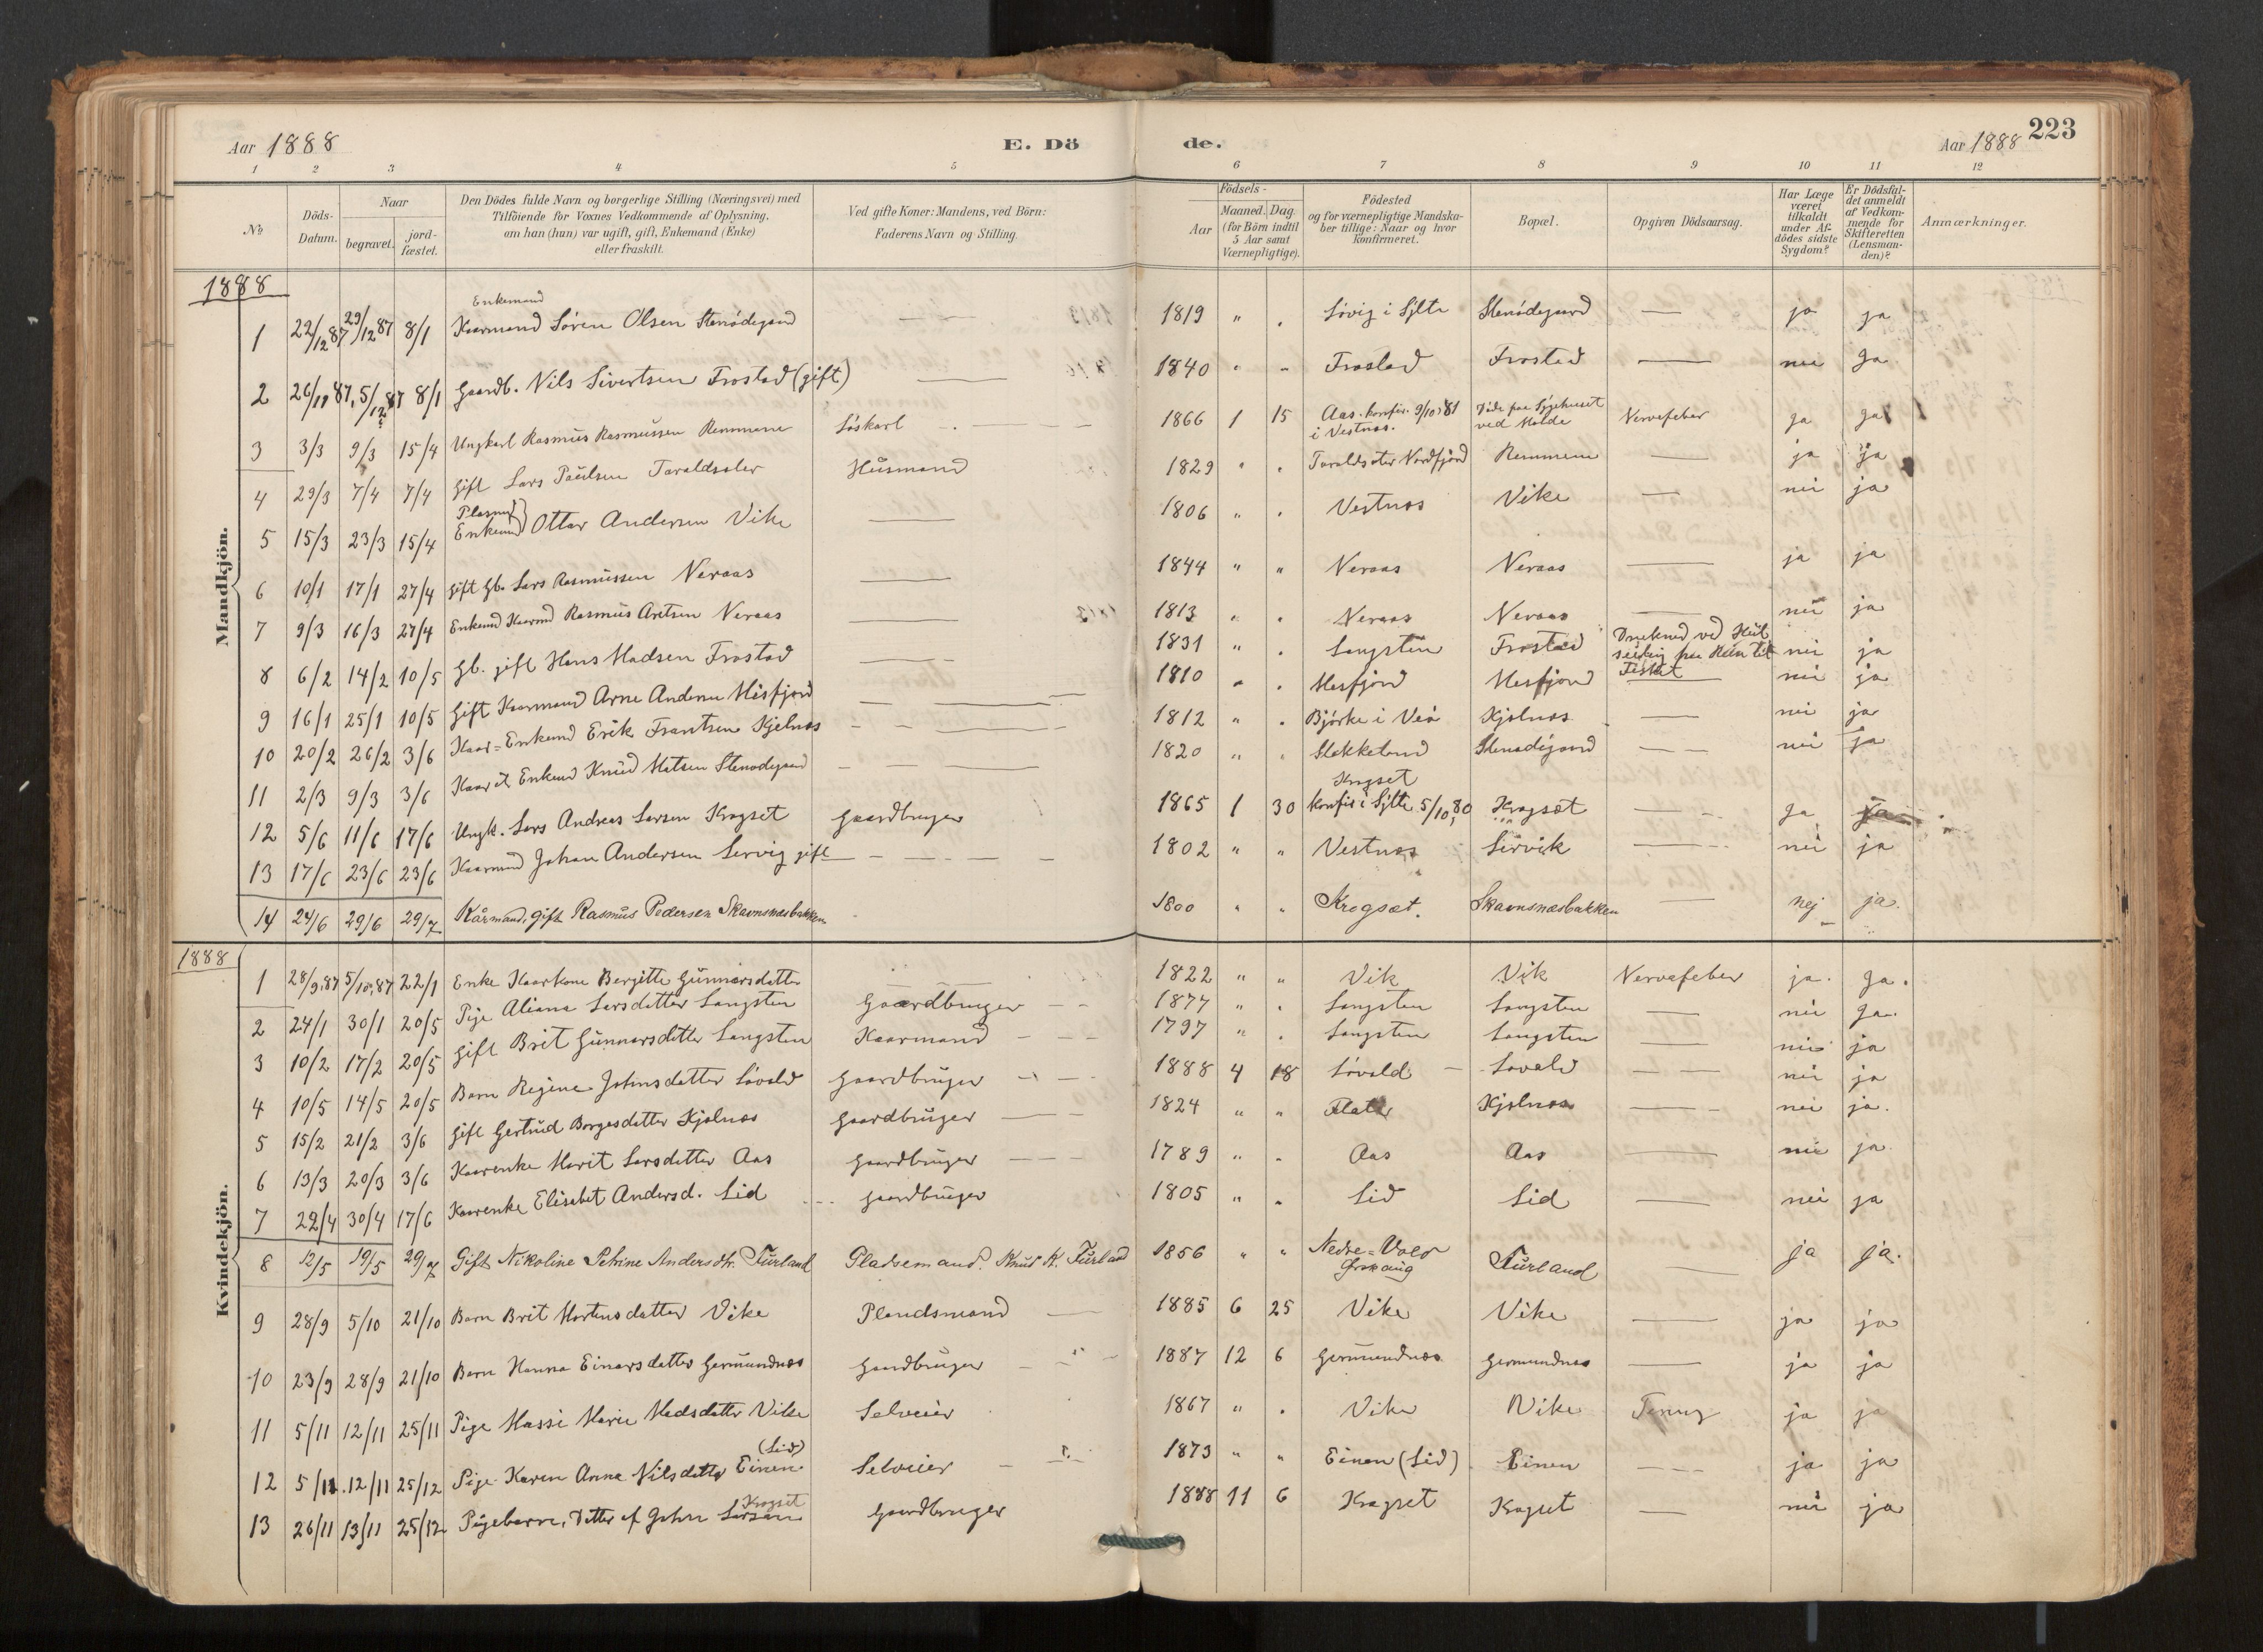 Aar 1888 E. Dö de. Aar 1888 223
1 2 3 4 5 6 7 8 9 10 11 12
№ Döds-Datum. Naar begravet. jord-fæstet. Den Dödes fulde Navn og borgerlige Stilling (Næringsvei) med Tilföiende for Voxnes Vedkommende af Oplysning, om han (hun) var ugift, gift, Enkemand (Enke) eller fraskilt. Ved gifte Koner: Mandens, ved Börn: Faderens Navn og Stilling. Födsels- Aar Maaned. Dag (for Börn indtil 5 Aar samt Værnepligtige). Födested og for værnepligtige Mandskaber tillige: Naar og hvor konfirmeret. Bopæl. Opgiven Dödsaarsag. Har Læge været tilkaldt under Afdödes sidste Sygdom? Er Dödsfaldet anmeldt af Vedkommende for Skifteretten (Lensmanden)? Anmærkninger.
Mandkjön.
1888
1 22/12 87 29/12 87 8/1 Enkemand Kaarmand Sören Olsen Stenödegaard 1819 " . Sövig i Sylte Stenödegaard — ja ja
2 26/11 87, 5/12 87 8/1 Gaardb. Nils Sivertsen Frostad (gift) — 1840 " " Frostad Frostad — nei Ja
3 3/3 9/3 15/4 Ungkarl Rasmus Rasmussen Remmem Löskarl 1866 1 15 Aas. konfir. 9/10 '81 i Vestnæs. Döde paa Sygehuset ved Molde Nervefeber Ja Ja
4 29/3 7/4 7/4 Gift Lars Paulsen Taraldsæter Husmand 1829 " . Taraldsæter Nordfjord Remmem — ja Ja
5 15/3 23/3 15/4 Pladsmd Enkemd Ottar Andersen Vike — 1806 " . Vestnæs Vike — nei ja
6 10/1 17/1 27/4 gift Gb. Lars Rasmussen Neraas — 1844 " " Neraas Neraas — ja ja
7 9/3 16/3 27/4 Enkemd Kaarmd Rasmus Aretsen Neraas — 1813 " . Neraas Neraas — nei ja
8 6/2 14/2 10/5 Gb. gift Hans Madsen Frostad — 1831 " . Langsten Frostad Druknet ved paa til Fisket nei ja
9 16/1 25/1 10/5 Gift Kaarmand Arne Andersen Misfjord — 1810 " . Mesfjord Mesfjord — nei ja
10 20/2 26/2 3/6 Kaar=Enkemd Erik Frantsen Kjelnæs — 1812 " . Björke i Veö Kjelnæs — nei ja
11 2/3 9/3 3/6 Kaar & Enkemd Knud Matsen Stenödegaard — 1820 " . Slokkeland Stenödegaard — nei ja
12 5/6 11/6 17/6 Ungk. Lars Andreas Larsen Kragset Gaardbruger 1865 1 30 Kragset konfir i Sylte 5/10, 80 Kragset — Ja ja
13 17/6 23/6 23/6 Kaarmand Johan Andersen Servig gift — 1802 " " Vestnæs Servik — nei ja
14 24/6 29/6 29/7 Kårmand, gift Rasmus Pedersen Skavnsnæsbakken 1800 " " Krogsæt. Skavnsnæsbakken — nej ja.
Kvindekjön.
1888
1 28/9 87 5/10, 87 22/1 Enke Kaarkone Bergitte Gunnarsdatter — 1822 " " Vik Vik Nervefeber ja. Ja.
2 24/1 30/1 20/5 Pige Aliana Larsdatter Langsten Gaardbruger 1877 " . Langsten Langsten — nei Ja.
3 10/2 17/2 20/5 Gift Brit Gunnarsdatter Langsten Kaarmand 1797 " . Langsten Langsten — nei ja
4 10/5 14/5 20/5 Barn Regine Johnsdatter Lövold Gaardbruger 1888 4 18 Lövold Lovold — nei ja
5 15/2 21/2 3/6 Gift Gertrud Borgesdatter Kjelnæs Gaardbruger 1824 " " Kjelnæs — nei ja.
6 13/3 20/3 3/6 Kaarenke Marit Larsdatter Aas Gaardbruger 1789 " . Aas Aas — nei ja
7 22/4 30/4 17/6 Kaarenke Elisabet Andersd. Lid Gaardbruger 1805 " . Lid Lid — nei ja
8 12/5 19/5 29/7 Gift Nikoline Petrine Andersdtr. Furland Pladsemand. Knud K. Furland 1856 " " Nedre=Vold Furland — ja ja.
9 28/9 5/10 21/10 Barn Brit Mortensdatter Vike Plandsmand 1885 6 25 Vike Vike — ja ja
10 23/9 28/9 21/10 Barn Hanna Einarsdatter Gjermundnæs Gaardbruger 1887 12 6 Germundnæs Germundnæs — ja ja
11 5/11 12/11 25/11 Pige Massi Marie Madsdatter Vike Selveier 1867 " . Vike Vike Tæring ja ja
12 5/11. 12/11 25/12 Pige Karen Anna Nilsdatter Einen (Lid) Selveier 1873 " " Einen (Lid) Einen — ja ja
13 26/11 13/11 25/12 Pigebarn, Datter af John Larsen Kragset Gaardbruger 1888 11 6 Kragset Kragset — nei ja